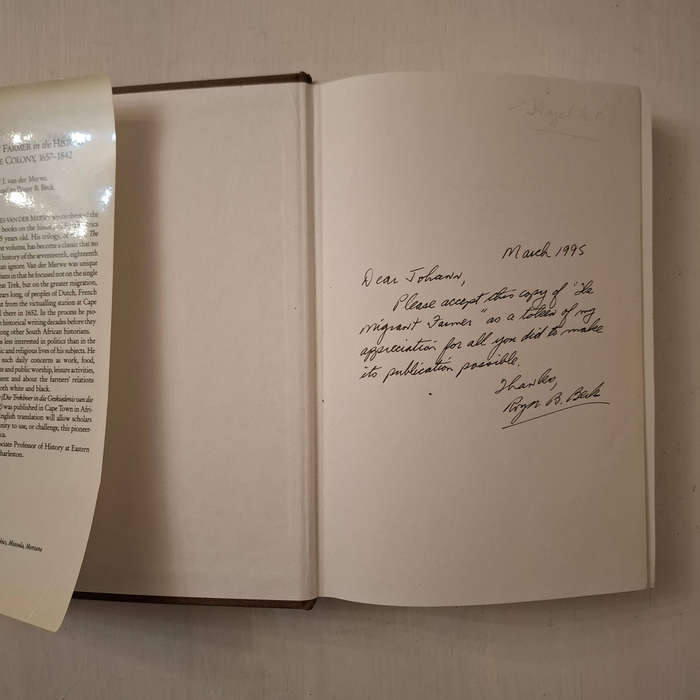 FARMER in the HISTORY
COLONY, 1657–1842
J. van der Merwe
Roger B. Beck
VAN DER MERWE the
books on the history of
5 years old. His trilogy, of The
volume, has become a classic that no
ignore. Van der Merwe was unique
in that he focused not on the single
Trek, but on the greater migration,
years long, of peoples of Dutch, French
from the virtualling station at Cape
there in 1652. In the process he
historical writing decades before they
among other South African historians.
less interested in politics than in the
and religious lives of his subjects. He
such daily concerns as work, food,
and public worship, leisure activities,
and about the farmers' relations
both white and black.
(Die Trekboer in die Geskiedenis van die
was published in Cape Town in
English translation will allow scholars
to use, or challenge, this
Professor of History at Eastern
Charleston.
Missoula, Montana
March 1995
Dear Johann,
Please accept this copy of "The
Migrant Farmer" as a token of my
appreciation for all you did to make
its publication possible.
Thanks,
Roger B. Beck